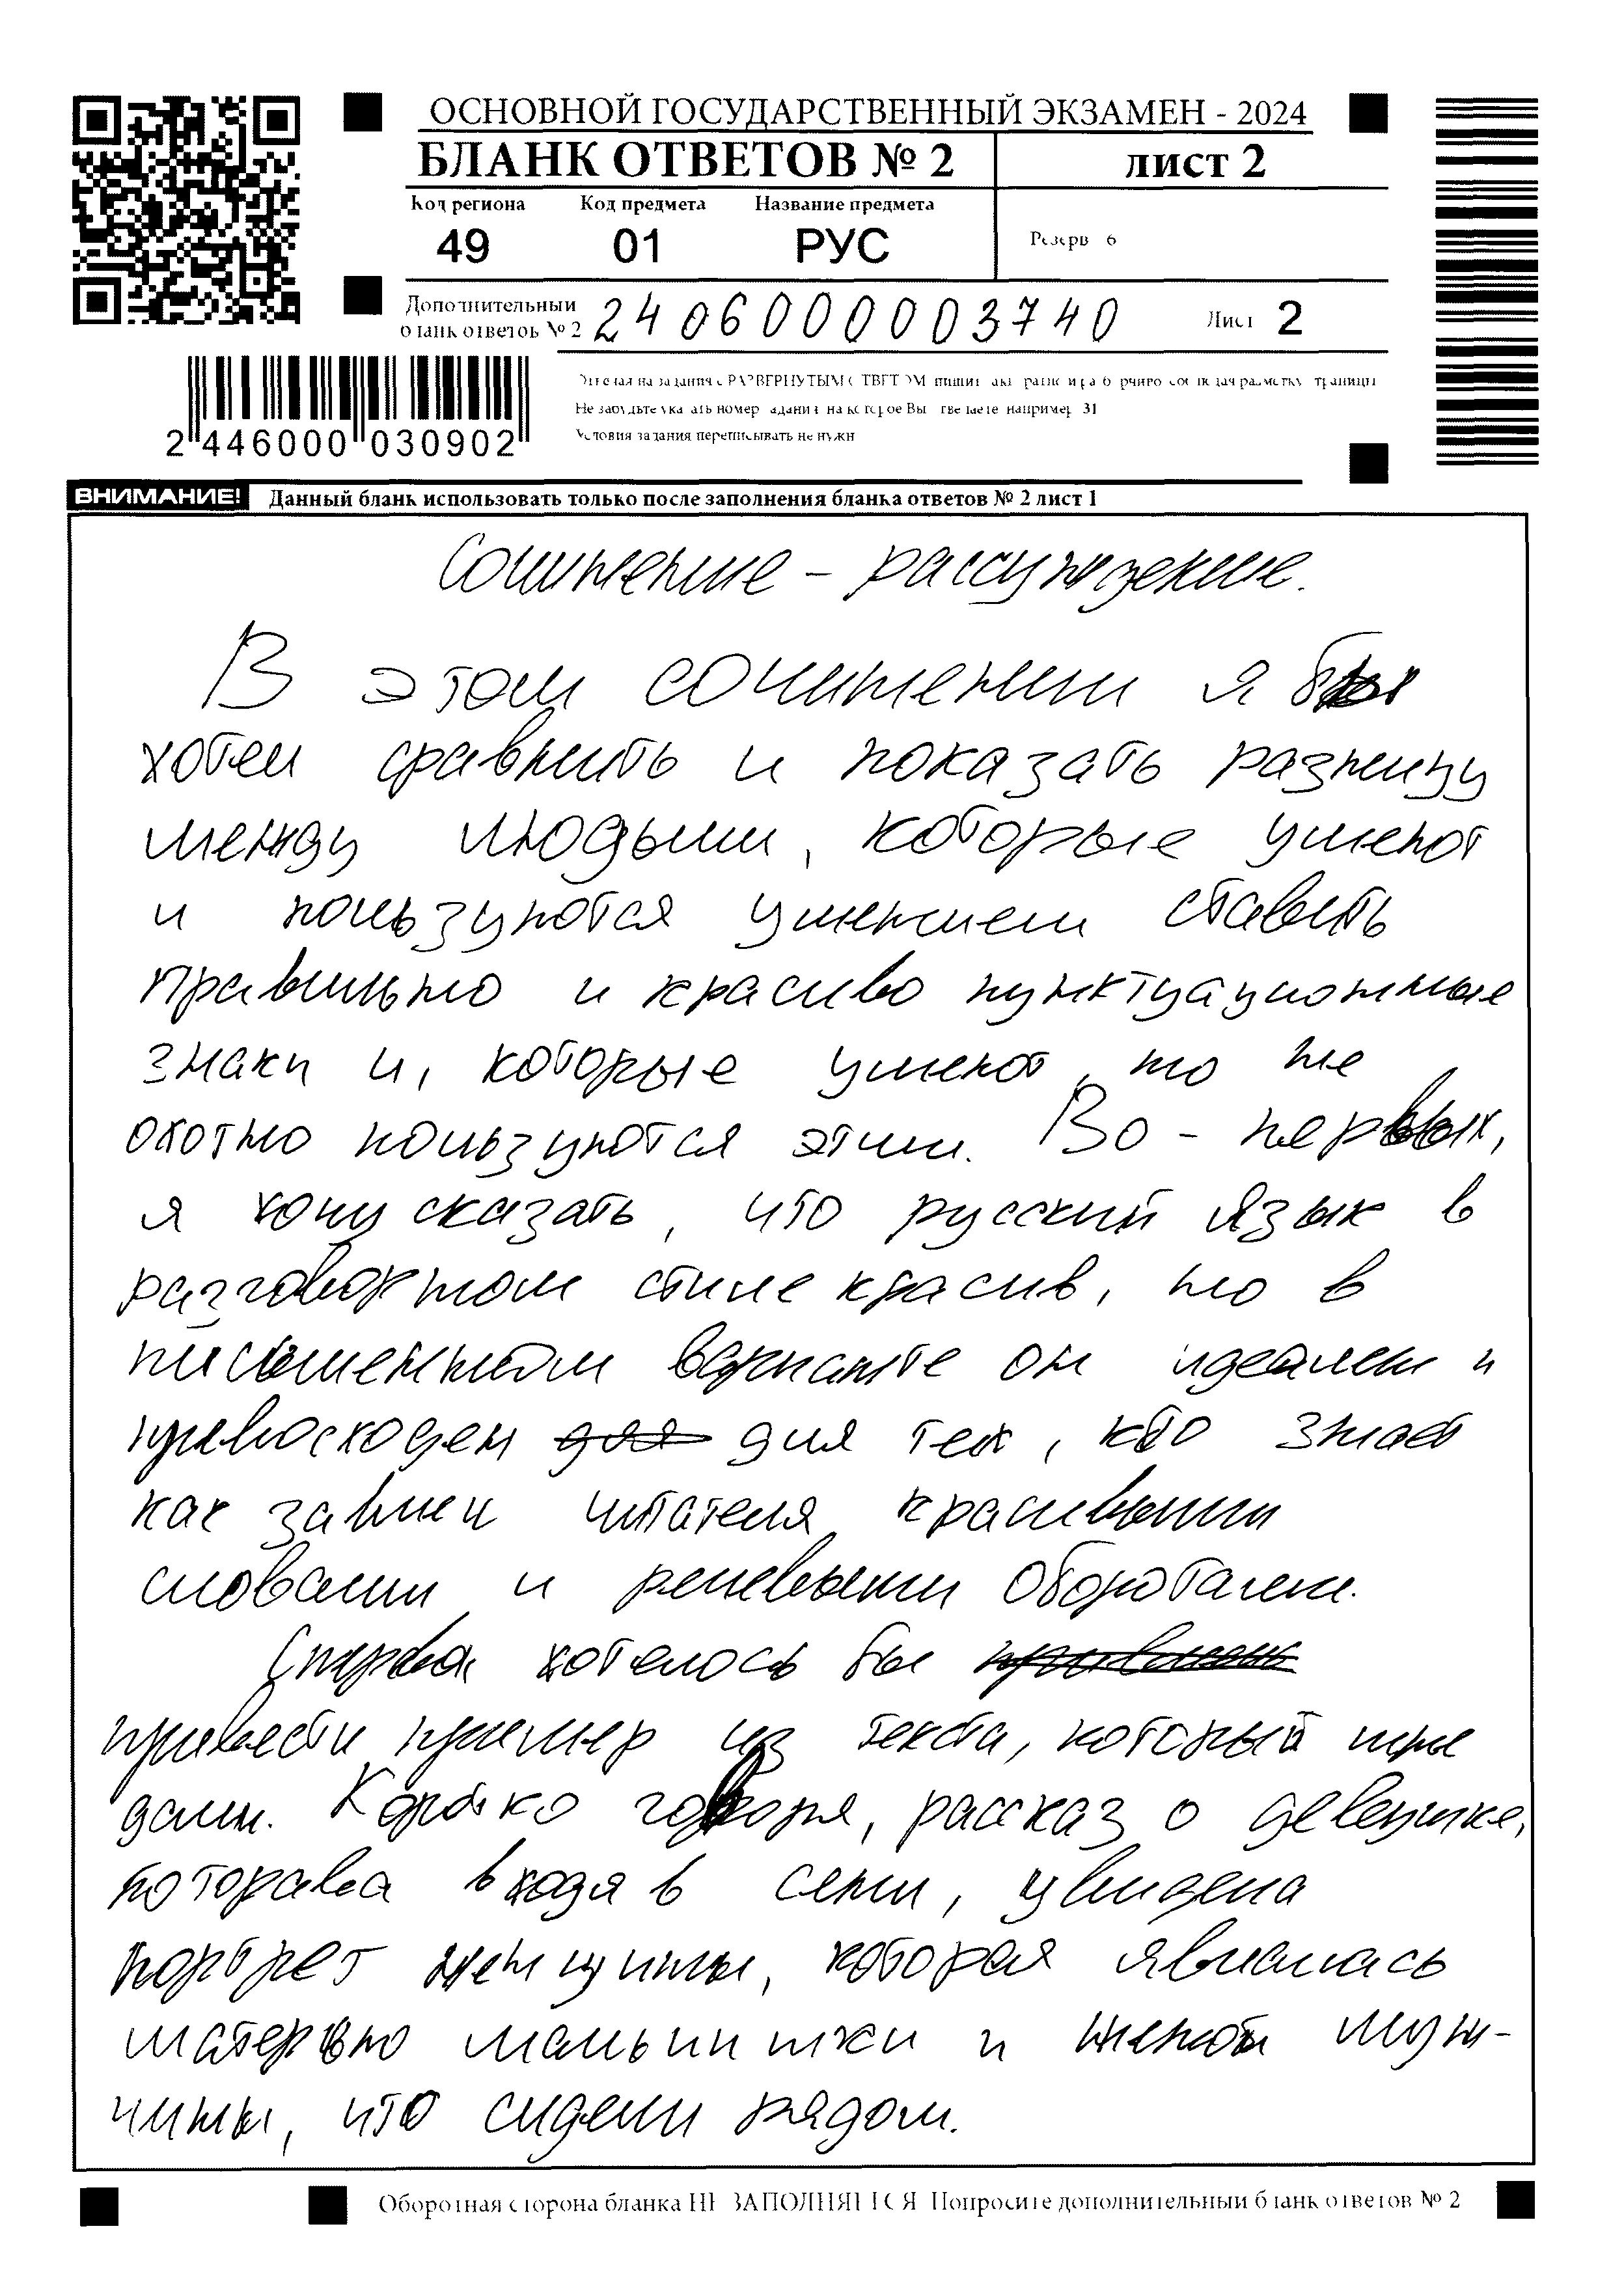 ОСНОВНОЙ ГОСУДАРСТВЕННЫЙ ЭКЗАМЕН - 2024
БЛАНК ОТВЕТОВ № 2
ЛИСТ 2
Код региона Код предмета Название предмета
49 01 РУС
Резерв 6
Дополнительный бланк ответов № 2 2406000003740 Лист 2
Не забудьте указать номер задания на которое Вы отвечаете, например 31
Условия задания переписывать не нужно
2 446000 030902
ВНИМАНИЕ! Данный бланк использовать только после заполнения бланка ответов № 2 лист 1
Сочинение - рассуждение.
В этом сочинении я бы
хотел сравнить и показать разницу
между людьми, которые умеют
и пользуются умением ставить
правильно и красиво пунктуационные
знаки и, которые умеют, но не
охотно пользуются этим. Во - первых,
я хочу сказать, что русский язык в
разговорном стиле красив, но в
письменном варианте он идеален и
превосходен для для тех, кто знает
как завлеч читателя красивыми
словами и речевыми оборотами.
Сперва хотелось бы
привести пример из текста, который мне
дали. Коротко говоря, рассказ о девушке,
которая входя в сени, увидела
портрет женщины, которая являлась
матерью мальчишки и женой муж-
чины, что сидели рядом.
Оборотная сторона бланка НЕ ЗАПОЛНЯЕТСЯ. Попросите дополнительный бланк ответов № 2